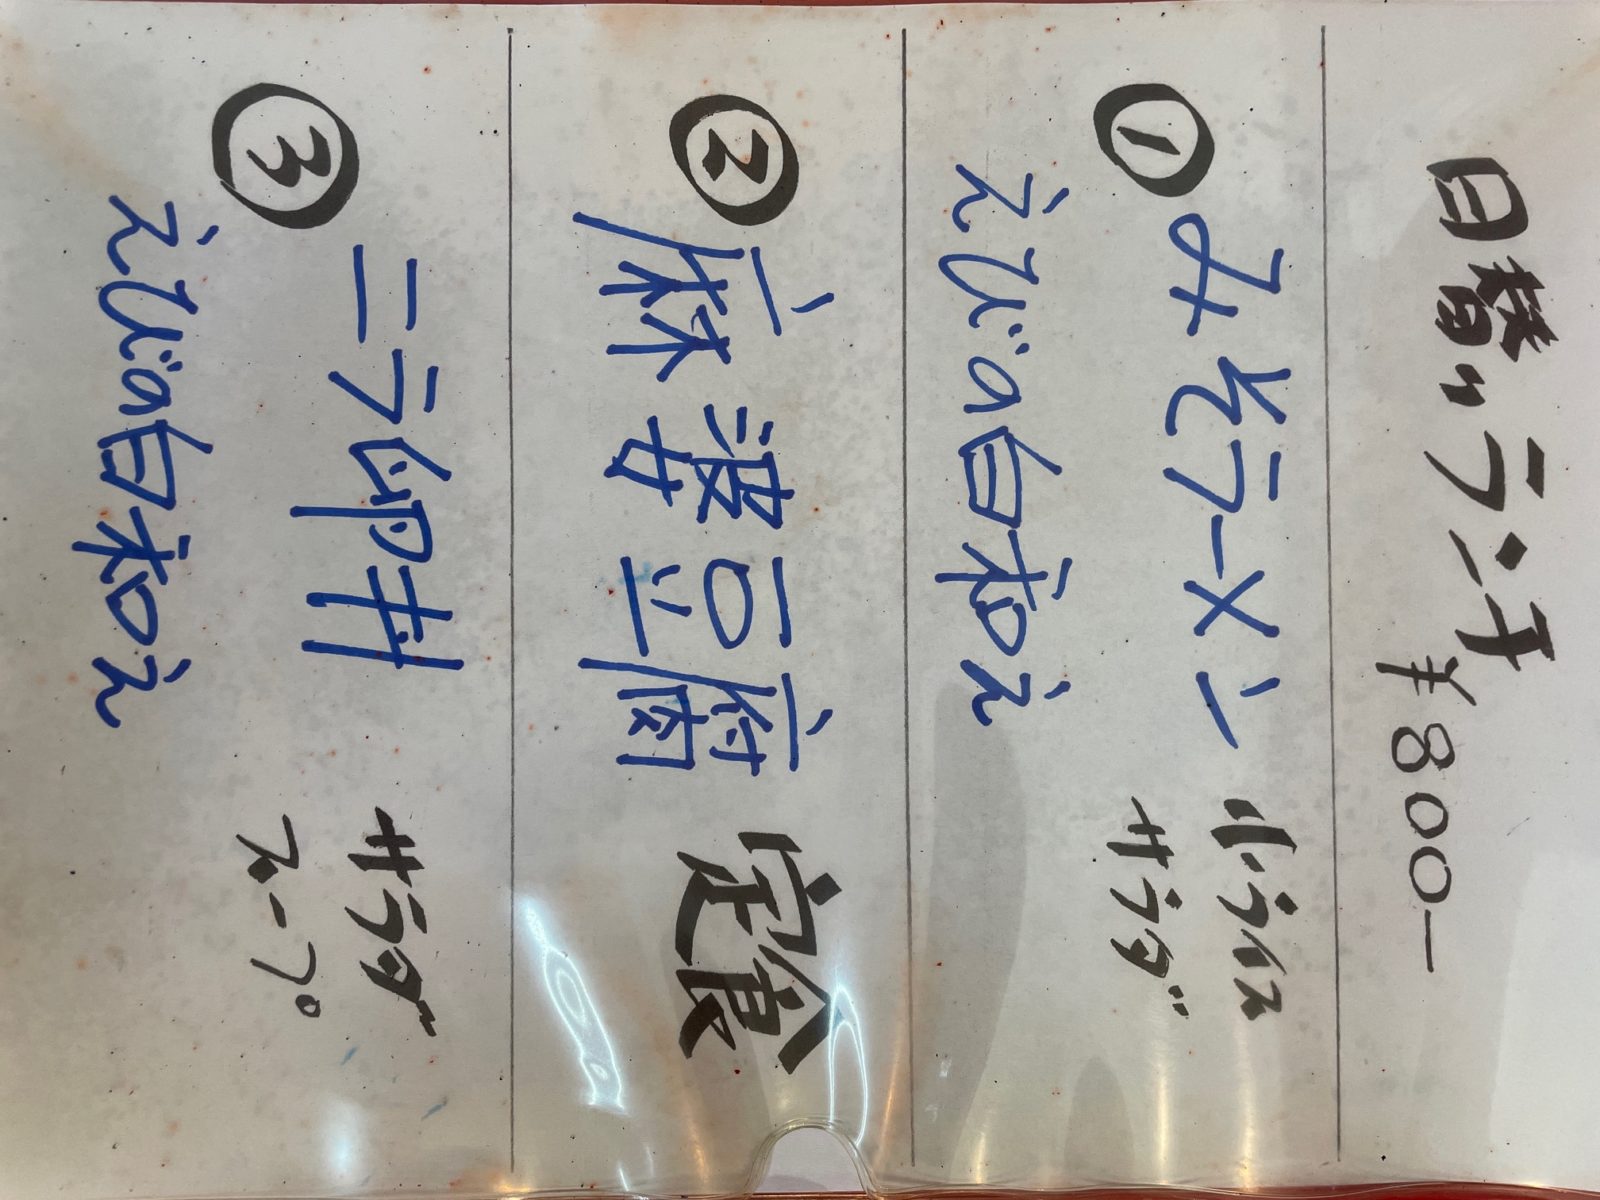 日替りランチ ¥800-
① みそラーメン 小ライス
えびの白和え サラダ
② 麻婆豆腐 定食
③ ニラ卵丼 サラダ
えびの白和え スープ